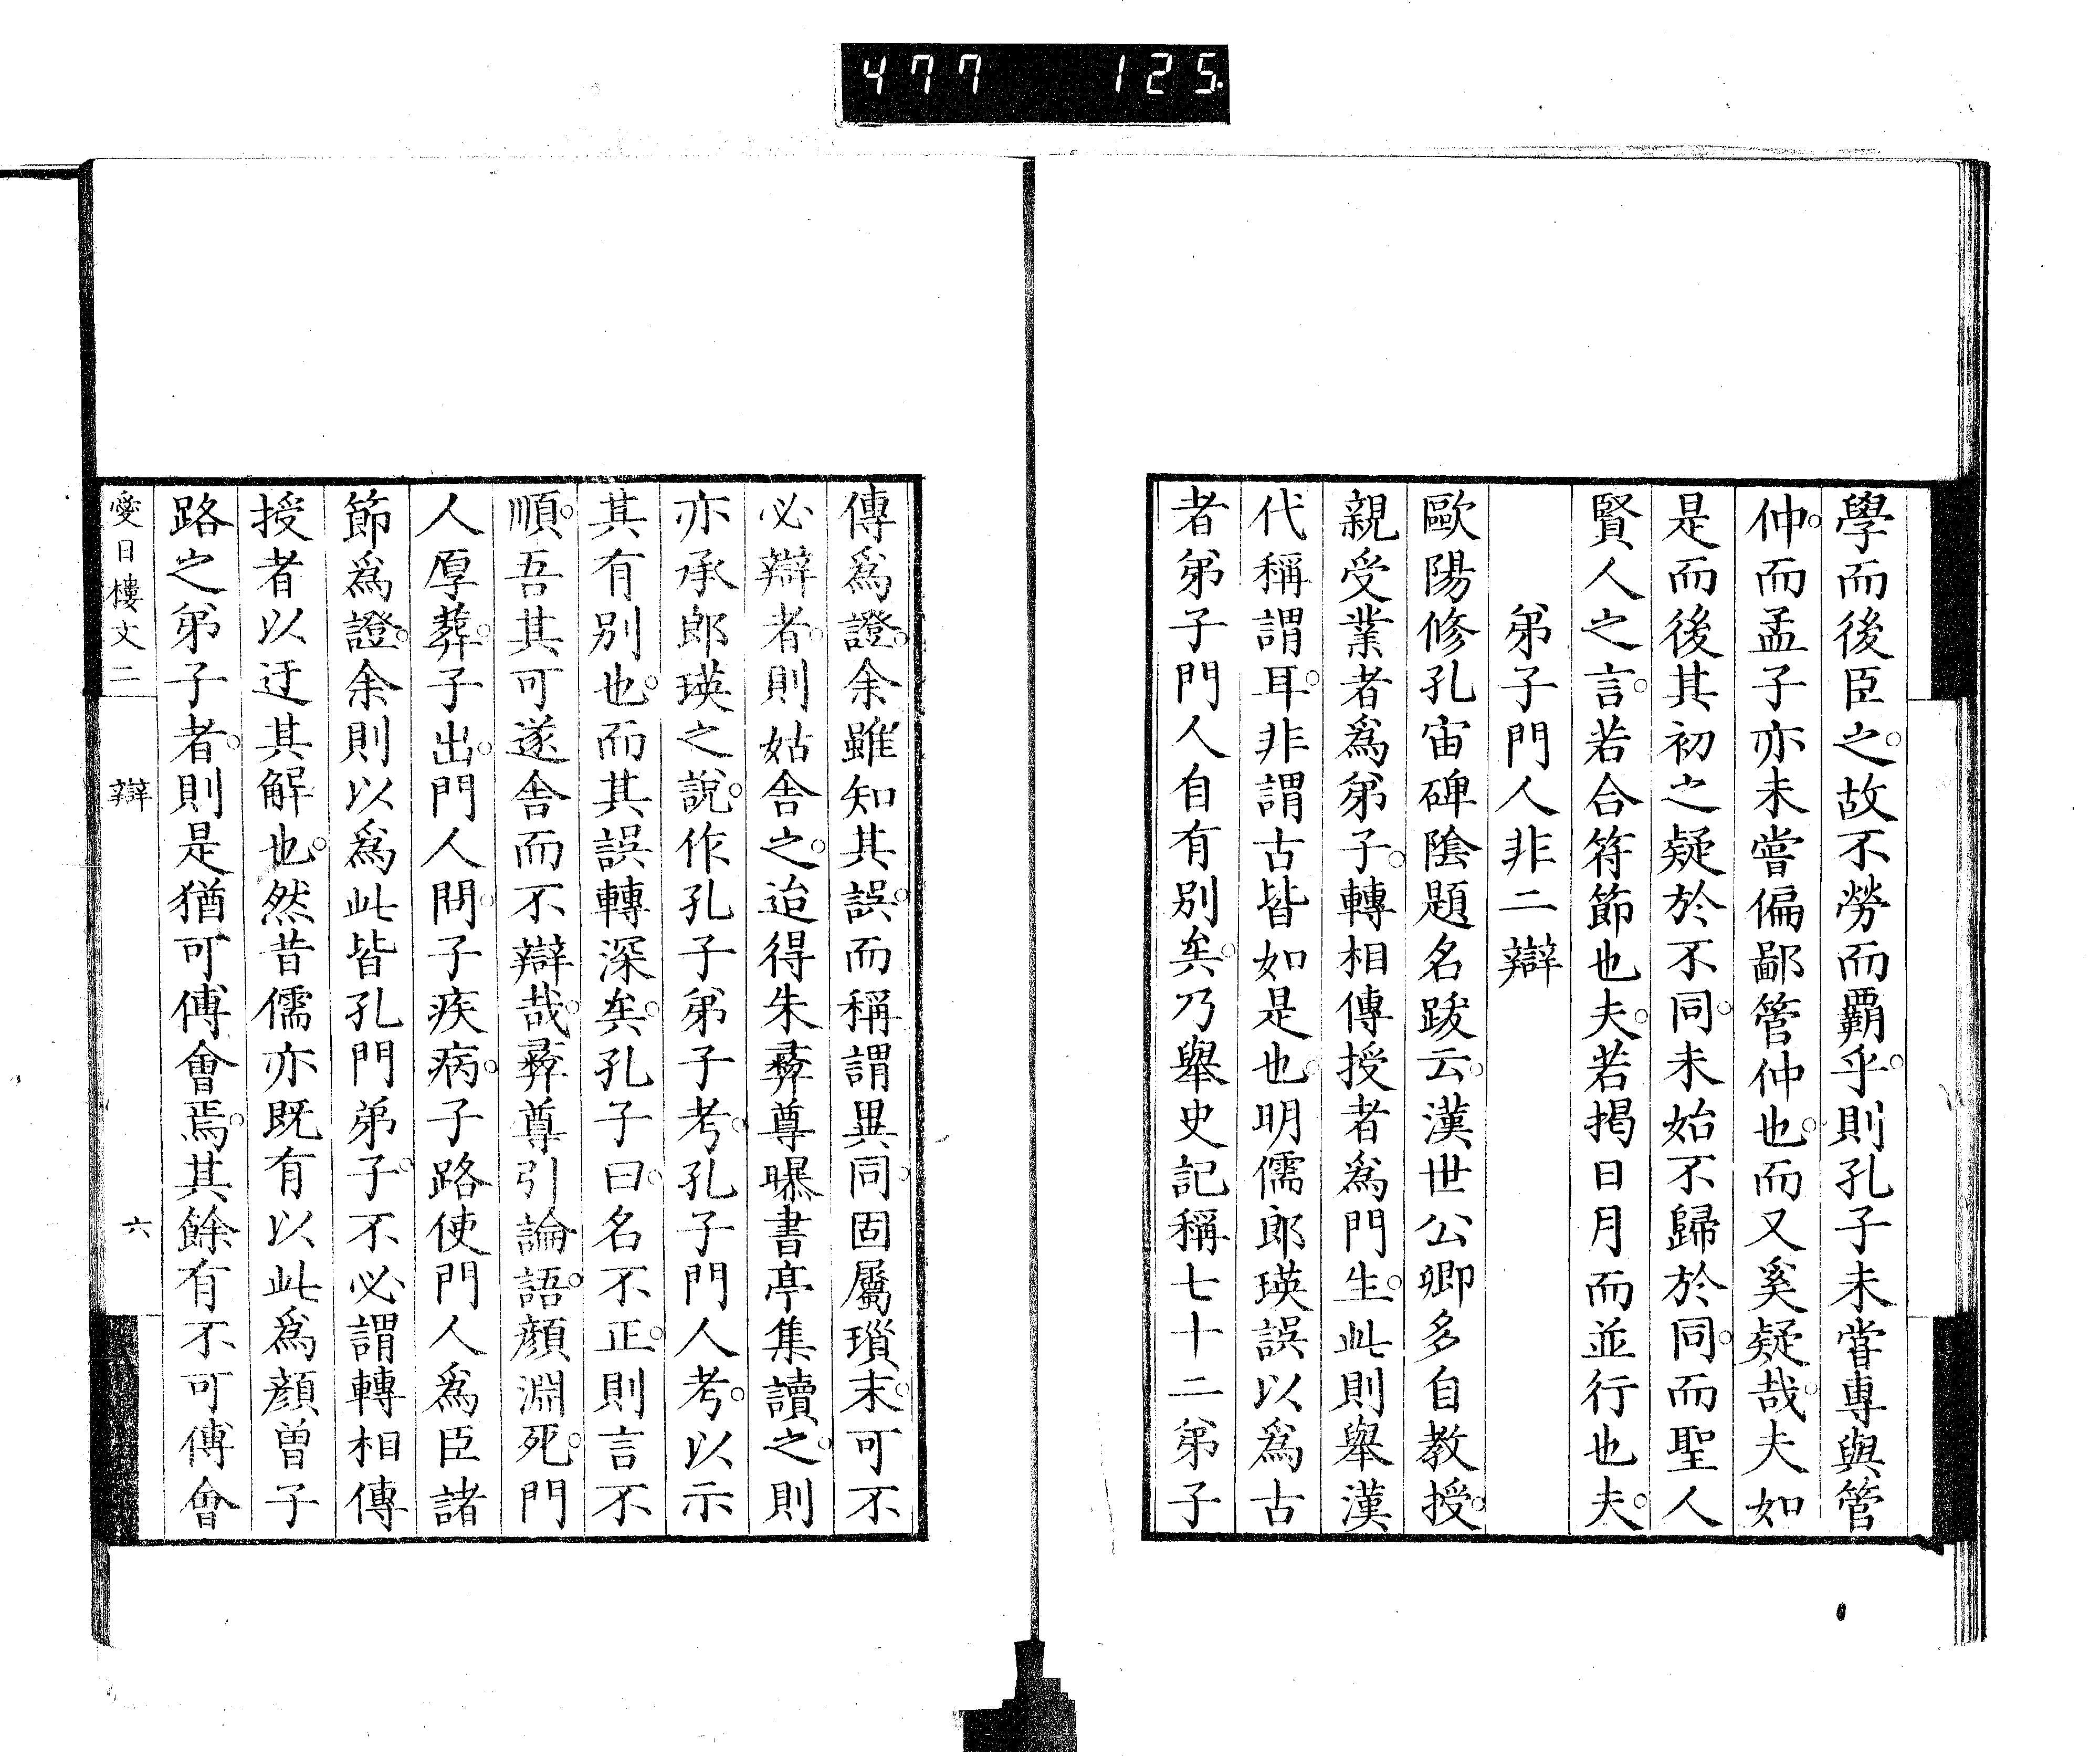 477 125
學而後臣之。故不勞而覇乎。則孔子未嘗專與管
仲。而孟子亦未嘗偏鄙管仲也。而又奚疑哉。夫如
是而後其初之疑於不同。未始不歸於同。而聖人
賢人之言。若合符節也夫。若揭日月而並行也夫。
弟子門人非二辯
歐陽修孔宙碑陰題名跋云。漢世公卿多自教授。
親受業者爲弟子。轉相傳授者爲門生。此則舉漢
代稱謂耳。非謂古皆如是也。明儒郎瑛誤以爲古
者弟子門人自有別矣。乃舉史記稱七十二弟子
傳爲證。余雖知其誤。而稱謂異同。固屬瑣末。可不
必辯者。則姑舍之。迨得朱彝尊曝書亭集讀之。則
亦承郎瑛之說。作孔子弟子考。孔子門人考。以示
其有別也。而其誤轉深矣。孔子曰。名不正。則言不
順。吾其可遂舍而不辯哉。彝尊引論語。顏淵死。門
人厚葬。子出。門人問。子疾病。子路使門人爲臣諸
節爲證。余則以爲此皆孔門弟子。不必謂轉相傳
授者以迂其解也。然昔儒亦既有以此爲顏曾子
路之弟子者。則是猶可傅會焉。其餘有不可傅會
愛日樓文二 辯 六